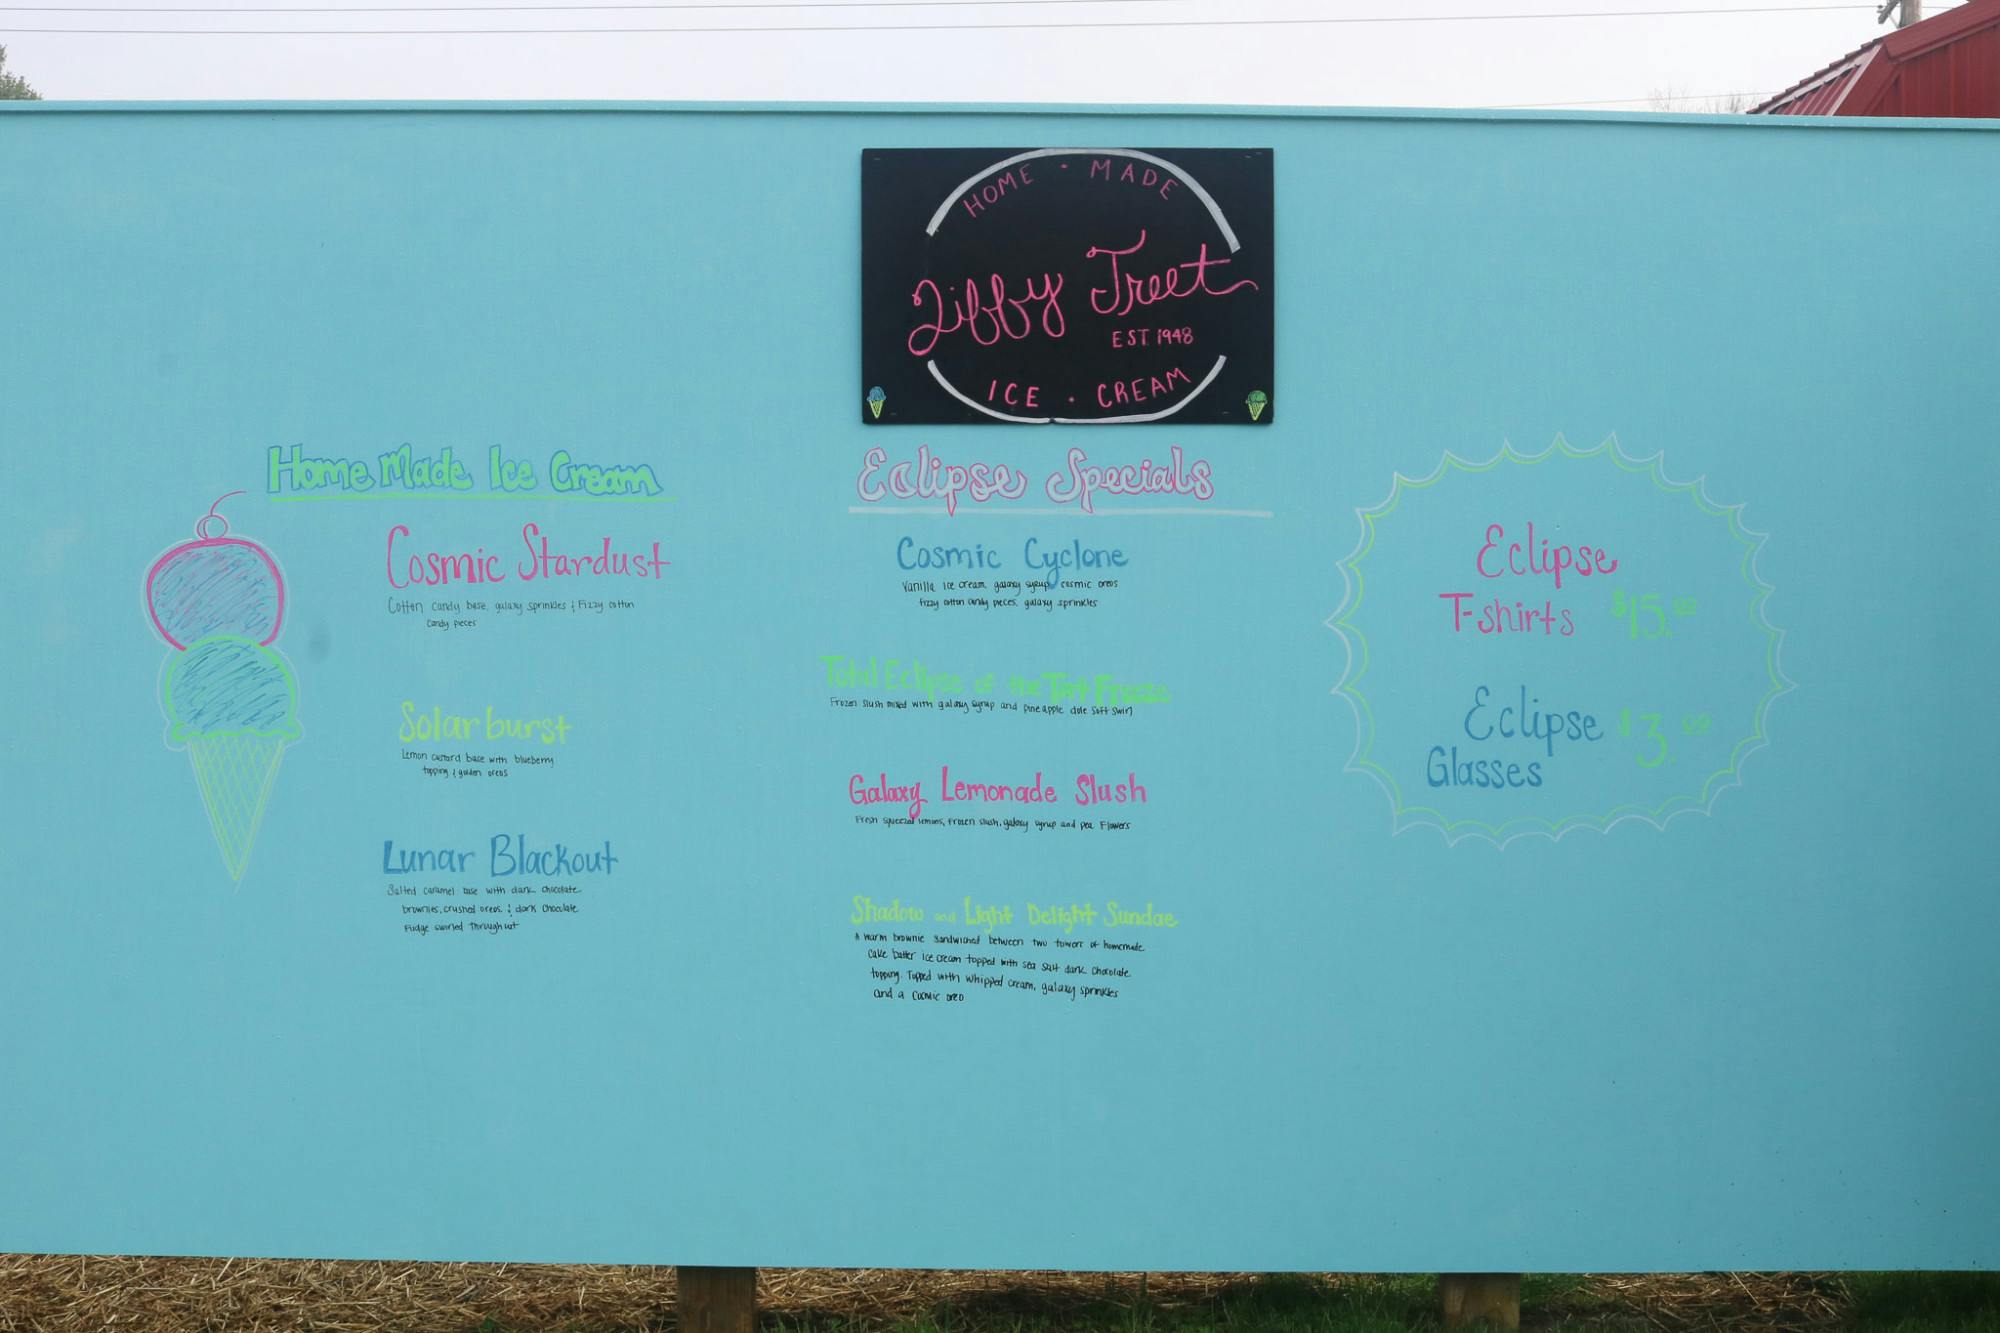 HOME · MADE
Jiffy Treet
EST. 1948
ICE · CREAM
Home Made Ice Cream
Cosmic Stardust
Cotton candy base, galaxy sprinkles & Fizzy cotton
candy pieces
Solarburst
Lemon custard base with blueberry
topping & golden oreos
Lunar Blackout
Salted caramel base with dark chocolate
brownies, crushed oreos, & dark chocolate
Fudge swirled throughout
Eclipse Specials
Cosmic Cyclone
Vanilla ice cream, galaxy syrup, cosmic oreos
fizzy cotton candy pieces, galaxy sprinkles
Total Eclipse of the Tart Freeze
Frozen slush mixed with galaxy syrup and pineapple dole soft swirl
Galaxy Lemonade Slush
Fresh squeezed lemons, frozen slush, galaxy syrup and pea Flowers
Shadow and Light Delight Sundae
A warm brownie sandwiched between two towers of homemade
cake batter ice cream topped with sea salt dark chocolate
topping. Topped with whipped cream, galaxy sprinkles
and a cosmic oreo
Eclipse
T-shirts $15.00
Eclipse $3.00
Glasses